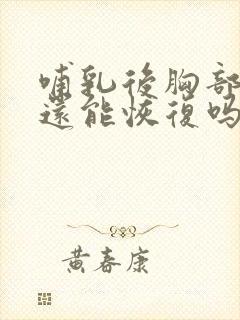 哺乳後胸部
還能恢復吗
黄春康